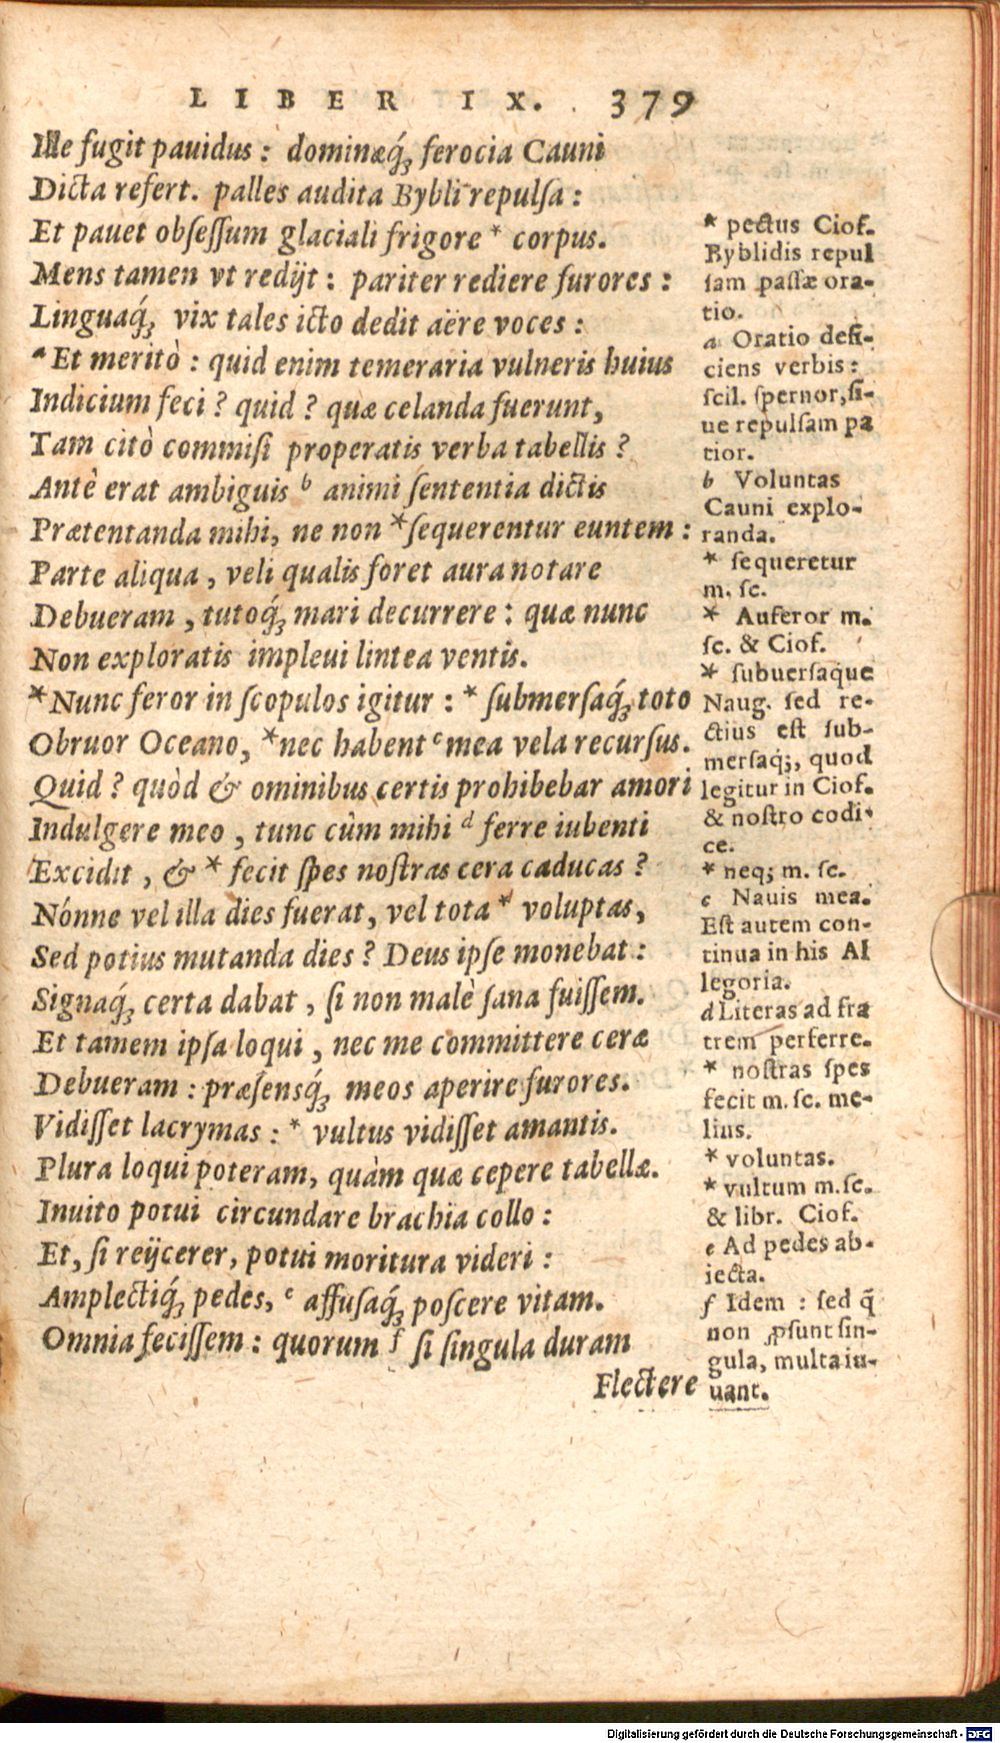 LIBER IX. 379
Ille fugit pauidus : dominæq́ʒ ferocia Cauni
Dicta refert. palles audita Bybli repulſa :
Et pauet obſeſſum glaciali frigore * corpus.
Mens tamen vt redijt : pariter rediere furores :
Linguaq́ʒ vix tales icto dedit aëre voces :
ᵃ Et meritò : quid enim temeraria vulneris huius
Indicium feci ? quid ? quæ celanda fuerunt,
Tam citò commiſi properatis verba tabellis ?
Antè erat ambiguis ᵇ animi ſententia dictis
Prætentanda mihi, ne non * ſequerentur euntem :
Parte aliqua , veli qualis foret aura notare
Debueram , tutoq́ʒ mari decurrere : quæ nunc
Non exploratis impleui lintea ventis.
* Nunc feror in ſcopulos igitur : * ſubmerſaq́ʒ toto
Obruor Oceano, * nec habent ᶜ mea vela recurſus.
Quid ? quòd & ominibus certis prohibebar amori
Indulgere meo , tunc cùm mihi ᵈ ferre iubenti
Excidit , & * fecit ſpes noſtras cera caducas ?
Nónne vel illa dies fuerat, vel tota * voluptas,
Sed potius mutanda dies ? Deus ipſe monebat :
Signaq́ʒ certa dabat , ſi non malè ſana fuiſſem.
Et tamem ipſa loqui , nec me committere ceræ
Debueram : præſensq́ʒ meos aperire furores.
Vidiſſet lacrymas : * vultus vidiſſet amantis.
Plura loqui poteram, quàm quæ cepere tabellæ.
Inuito potui circundare brachia collo :
Et, ſi reijcerer, potui moritura videri :
Amplectiq́ʒ pedes, ᵉ affuſaq́ʒ poſcere vitam.
Omnia feciſſem : quorum ᶠ ſi ſingula duram
Flectere
* pectus Ciof.
Byblidis repul
ſam paſſæ ora-
tio.
a Oratio defi-
ciens verbis :
ſcil. ſpernor, ſi-
ue repulſam pa
tior.
b Voluntas
Cauni explo-
randa.
* ſequeretur
m. ſc.
* Auferor m.
ſc. & Ciof.
* ſubuerſaque
Naug. ſed re-
ctius eſt ſub-
merſaq;, quod
legitur in Ciof.
& noſtro codi-
ce.
* neq; m. ſc.
c Nauis mea.
Eſt autem con-
tinua in his Al
legoria.
d Literas ad fra
trem perferre.
* noſtras ſpes
fecit m. ſc. me-
lius.
* voluntas.
* vultum m.ſc.
& libr. Ciof.
e Ad pedes ab-
iecta.
f Idem : ſed q̃
non ꝓſunt ſin-
gula, multa iu-
uant.
Digitalisierung gefördert durch die Deutsche Forschungsgemeinschaft - DFG